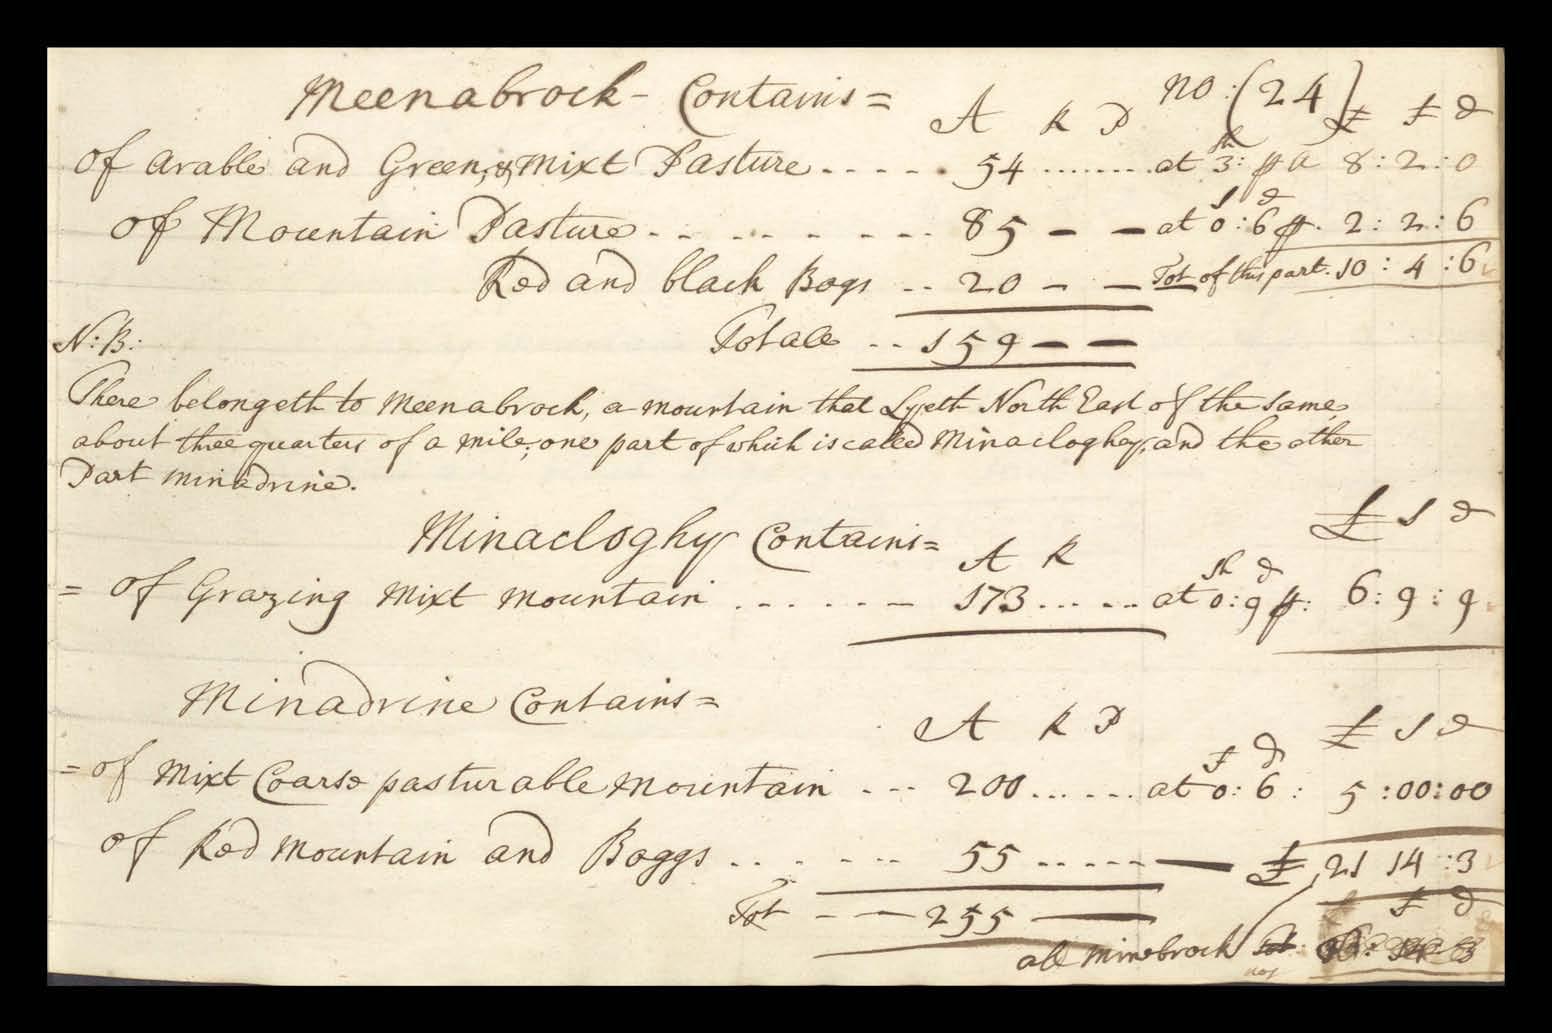 Meenabrock - Contains = no: (24)
A R P £ s d
of arable and Green, & Mixt Pasture ..... 54 ....... at 3 sh: p a 8 : 2 : 0
of Mountain Pasture - - - - - - - - - 85 — — at 0 s : 6 d p. 2 : 2 : 6
Red and black Bogs .. 20 - — Tot of this part. 10 : 4 : 6
Totall .. 159 — —
N:B:
There belongeth to Meenabrock, a mountain that Lyeth North East of the same
about three quarters of a mile; one part of which is called Minacloghy, and the other
Part minadrine.
£ s d
Minacloghy Contains =
A R
= of Grazing Mixt mountain ...... - 173 ..... at 0 sh : 9 d p: 6 : 9 : 9
Minadrine Contains =
A R P £ s d
= of Mixt Coarse pasturable Mountain ... 200 ...... at 0 s : 6 d : 5 : 00 : 00
of Red Mountain and Boggs ...... 55 ...... — £ 21 14 : 3
s d
Tot - — 255 —
all Minebrock